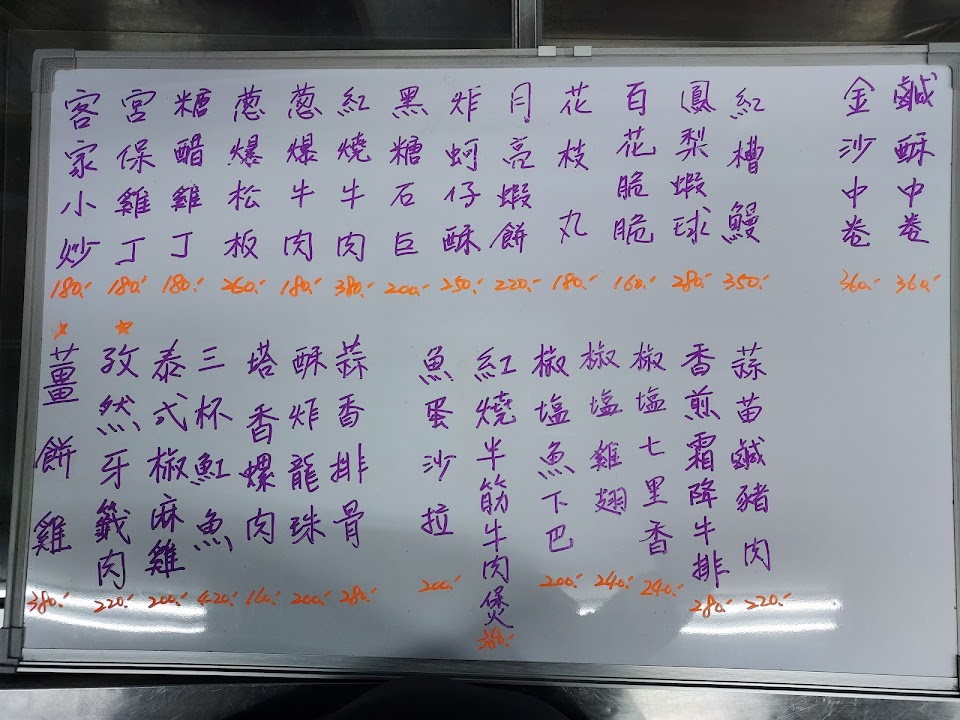 鹹酥中卷
360.-
金沙中卷
360.-
紅槽鰻
350.-
鳳梨蝦球
280.-
百花脆脆
160.-
花枝丸
180.-
月亮蝦餅
220.-
炸蚵仔酥
250.-
黑糖石巨
200.-
紅燒牛肉
380.-
蔥爆牛肉
180.-
蔥爆松板
260.-
糖醋雞丁
180.-
宮保雞丁
180.-
客家小炒
180.-
蒜苗鹹豬肉
220.-
香煎霜降牛排
280.-
椒塩七里香
240.-
椒塩雞翅
240.-
椒塩魚下巴
200.-
紅燒半筋牛肉煲
魚蛋沙拉
200.-
蒜香排骨
280.-
酥炸龍珠
200.-
塔香螺肉
160.-
三杯魟魚
420.-
泰式椒麻雞
200.-
孜然牙籤肉
220.-
薑餅雞
380.-